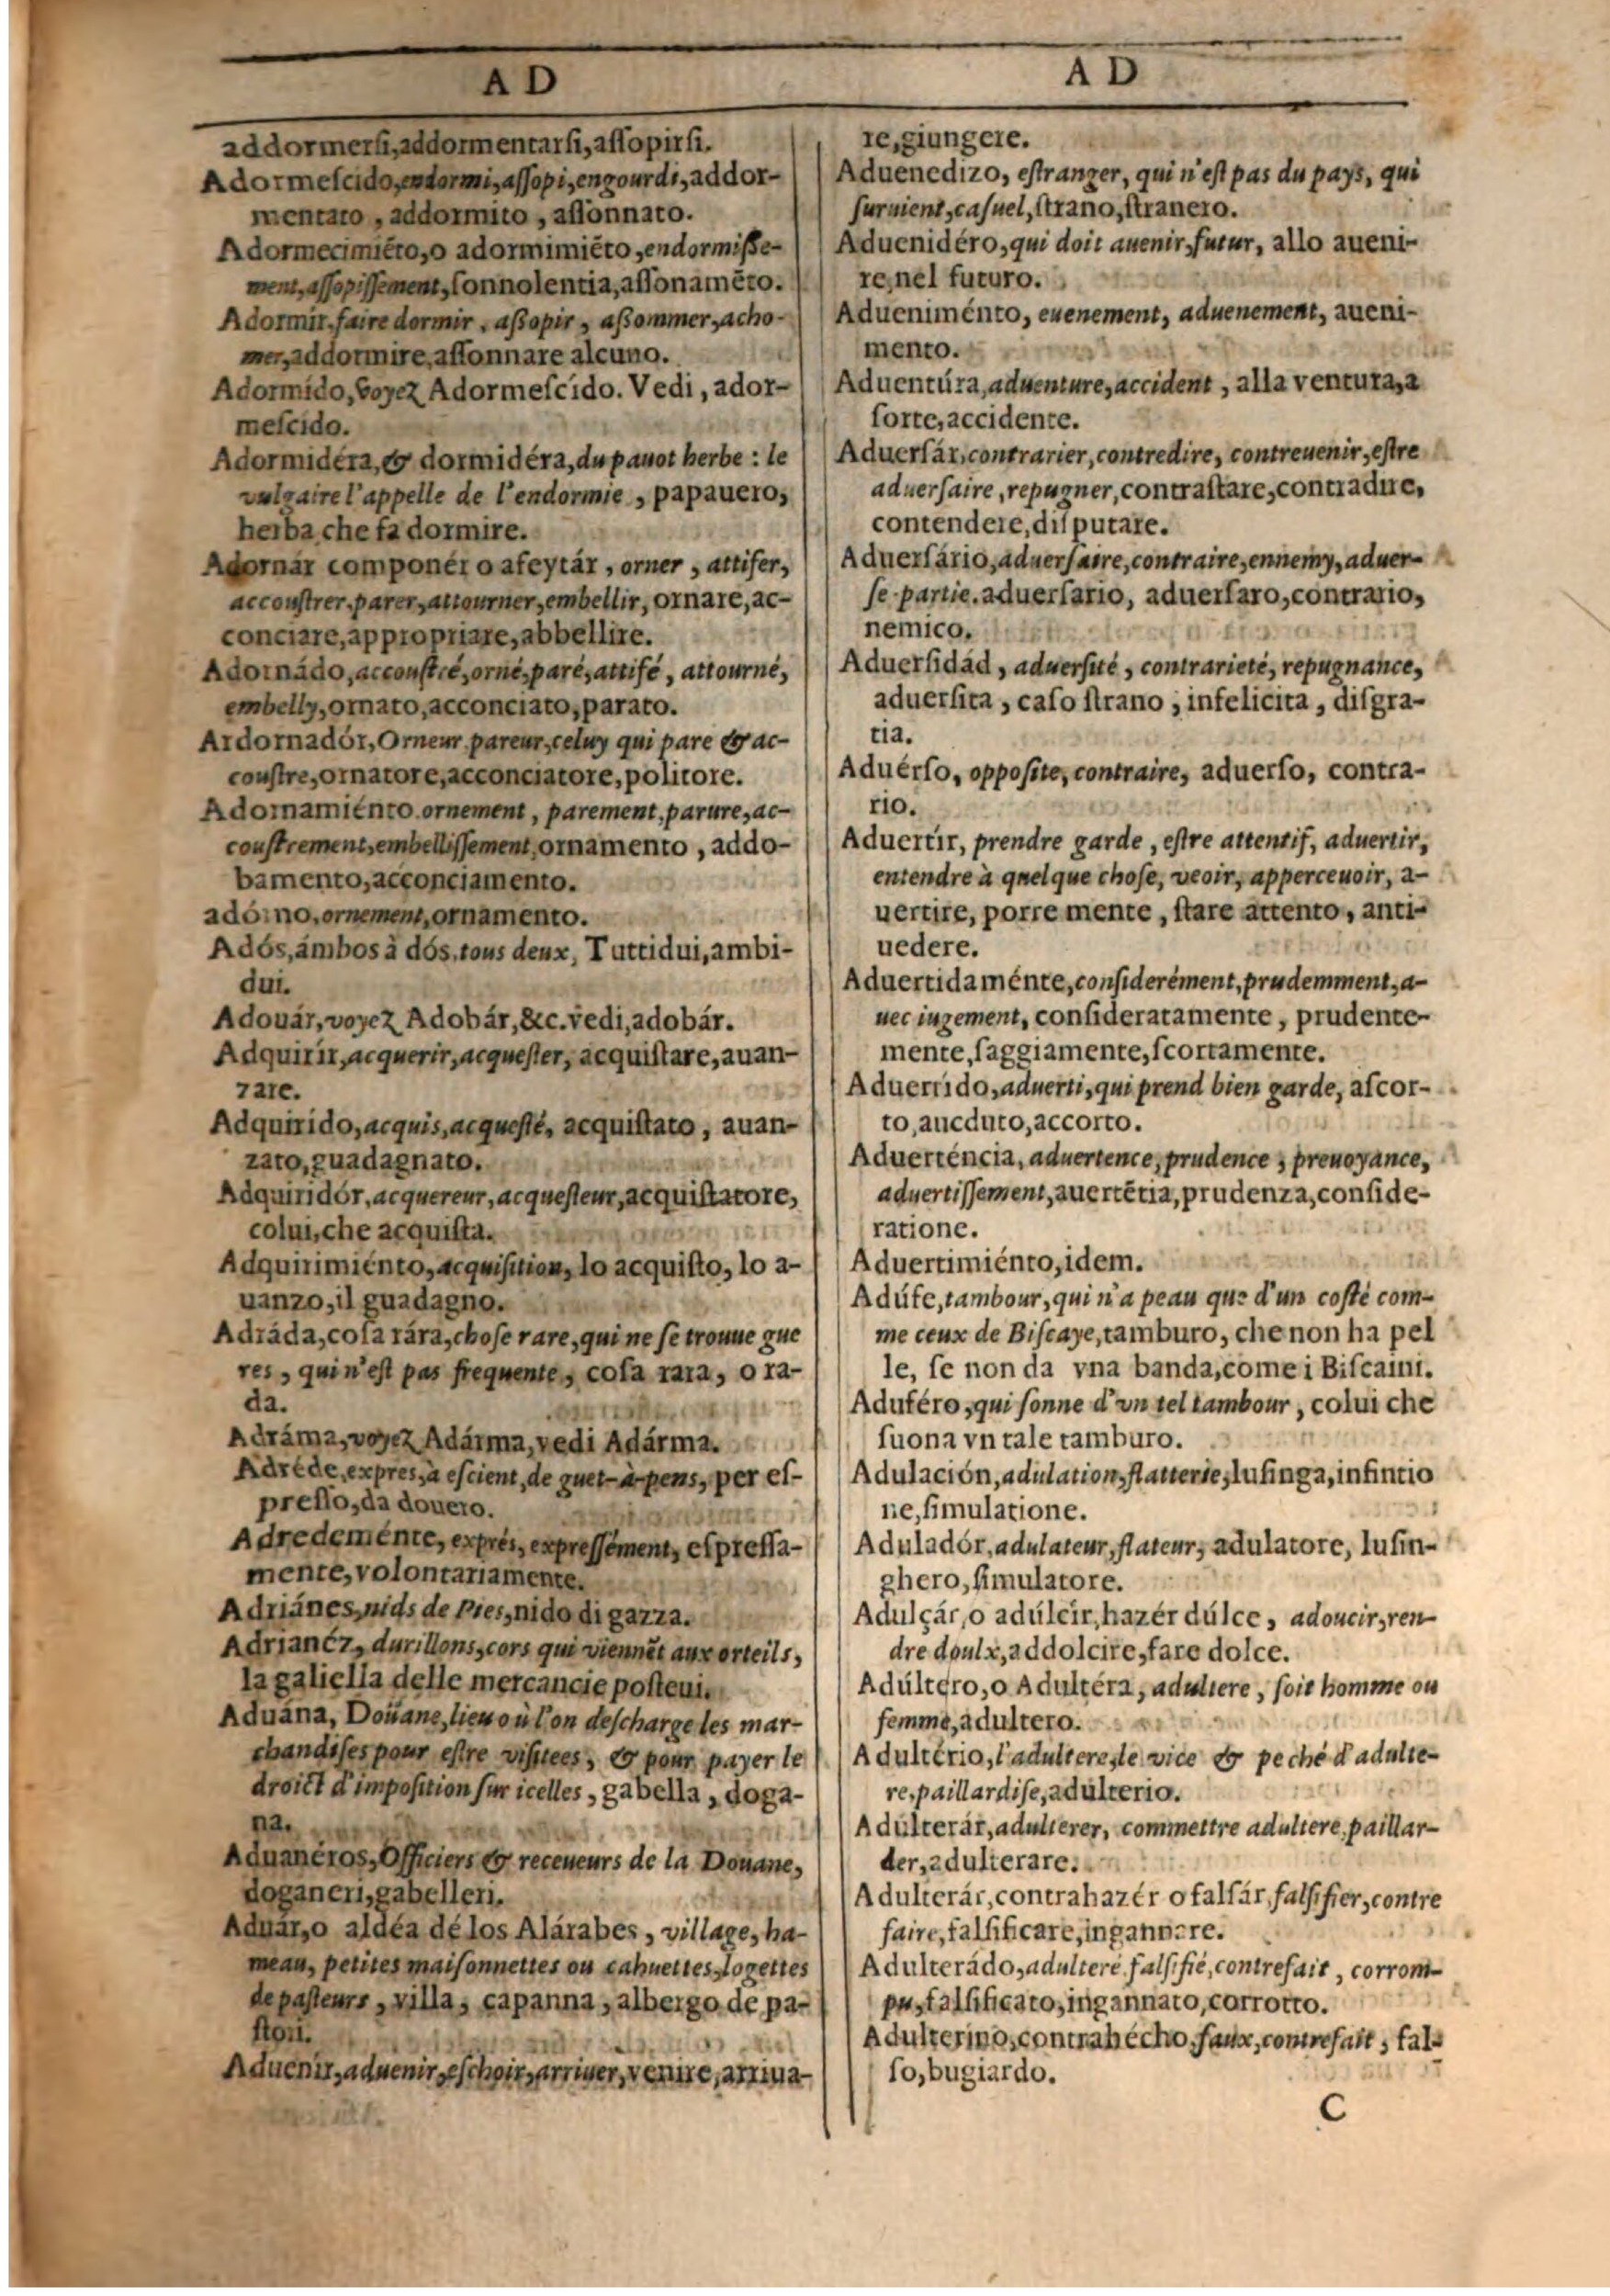 A D
addormerſi,addormentarſi,aſſopirſi.
Adormeſcido,endormi,aſſopi,engourdi,addor-
mentato , addormito , aſſonnato.
Adormecimiẽto,o adormimiẽto,endormiſſe-
ment,aſſopiſſement,ſonnolentia,aſſonamẽto.
Adormír,faire dormir , aſſopir , aſſommer,acho-
mer,addormire,aſſonnare alcuno.
Adormído,voyez Adormeſcído. Vedi , ador-
meſcido.
Adormidéra,& dormidéra,du pauot herbe : le
vulgaire l'appelle de l'endormie , papauero,
herba che fa dormire.
Adornár componér o afeytár , orner , attifer,
accouſtrer,parer,attourner,embellir, ornare,ac-
conciare,appropriare,abbellire.
Adornádo,accouſtré,orné,paré,attifé , attourné,
embelly,ornato,acconciato,parato.
Ardornadór,Orneur pareur,celuy qui pare & ac-
couſtre,ornatore,acconciatore,politore.
Adornamiénto ornement , parement,parure,ac-
couſtrement,embelliſſement,ornamento , addo-
bamento,acconciamento.
adórno,ornement,ornamento.
Adós,ámbos à dós,tous deux, Tuttidui,ambi-
dui.
Adouár,voyez Adobár,&c.vedi,adobár.
Adquirír,acquerir,acqueſter, acquiſtare,auan-
zare.
Adquirído,acquis,acqueſté, acquiſtato , auan-
zato,guadagnato.
Adquiridór,acquereur,acqueſteur,acquiſtatore,
colui,che acquiſta.
Adquirimiénto,acquiſition, lo acquiſto, lo a-
uanzo,il guadagno.
Adráda,coſa rára,choſe rare,qui ne ſe trouue gue
res , qui n'eſt pas frequente , coſa rara, o ra-
da.
Adráma,voyez Adárma,vedi Adárma.
Adréde,expres,à eſcient,de guet-à-pens, per eſ-
preſſo,da douero.
Adredeménte, exprés, expreſſément, eſpreſſa-
mente,volontariamente.
Adriánes,nids de Pies,nido di gazza.
Adrianéz, durillons,cors qui viennẽt aux orteils,
la galiella delle mercancie poſteui.
Aduána, Doüane,lieu où l'on deſcharge les mar-
chandiſes pour eſtre viſitees, & pour payer le
droict d'impoſition ſur icelles , gabella , doga-
na.
Aduanéros,Officiers & receueurs de la Doüane,
doganeri,gabelleri.
Aduár,o aldéa dé los Alárabes , village, ha-
meau, petites maiſonnettes ou cahuettes,logettes
de paſteurs , villa, capanna , albergo de pa-
ſtori.
Aduenír,aduenir,eſchoir,arriuer,venire,arriua-
A D
re,giungere.
Aduenedizo, eſtranger, qui n'eſt pas du pays, qui
ſuruient,caſuel,ſtrano,ſtranero.
Aduenidéro,qui doit auenir,futur, allo aueni-
re,nel futuro.
Adueniménto, euenement, aduenement, aueni-
mento.
Aduentúra,aduenture,accident , alla ventura,a
ſorte,accidente.
Aduerſár,contrarier,contredire, contreuenir,eſtre
aduerſaire,repugner,contraſtare,contradire,
contendere,diſputare.
Aduerſário,aduerſaire,contraire,ennemy,aduer-
ſe partie.aduerſario, aduerſaro,contrario,
nemico.
Aduerſidád , aduerſité , contrarieté, repugnance,
aduerſita , caſo ſtrano , infelicita , diſgra-
tia.
Aduérſo, oppoſite, contraire, aduerſo, contra-
rio.
Aduertír, prendre garde , eſtre attentif, aduertir,
entendre à quelque choſe, veoir, apperceuoir, a-
uertire, porre mente , ſtare attento, anti-
uedere.
Aduertidaménte,conſiderément,prudemment,a-
uec iugement, conſideratamente , prudente-
mente,ſaggiamente,ſcortamente.
Aduertido,aduerti,qui prend bien garde, aſcor-
to,aueduto,accorto.
Aduerténcia, aduertence,prudence , preuoyance,
aduertiſſement,auertẽtia,prudenza,conſide-
ratione.
Aduertimiénto,idem.
Adúfe,tambour,qui n'a peau que d'un coſté com-
me ceux de Biſcaye,tamburo, che non ha pel
le, ſe non da vna banda,come i Biſcaini.
Aduféro,qui ſonne d'vn tel tambour , colui che
ſuona vn tale tamburo.
Adulación,adulation,flatterie,luſinga,infintio
ne,ſimulatione.
Aduladór,adulateur,flateur, adulatore, luſin-
ghero,ſimulatore.
Adulçár,o adúlcir,hazér dúlce, adoucir,ren-
dre doulx,addolcire,fare dolce.
Adúltero,o Adultéra, adultere , ſoit homme ou
femme,adultero.
Adultério,l'adultere,le vice & peché d'adulte-
re,paillardiſe,adulterio.
Adulterár,adulterer, commettre adultere,paillar-
der,adulterare.
Adulterár,contrahazér o falſár,falſifier,contre
faire,falſificare,ingannare.
Adulterádo,adulteré falſifié,contrefait , corrom-
pu,falſificato,ingannato,corrotto.
Adulterino,contrahécho,faux,contrefait , fal-
ſo,bugiardo.
C